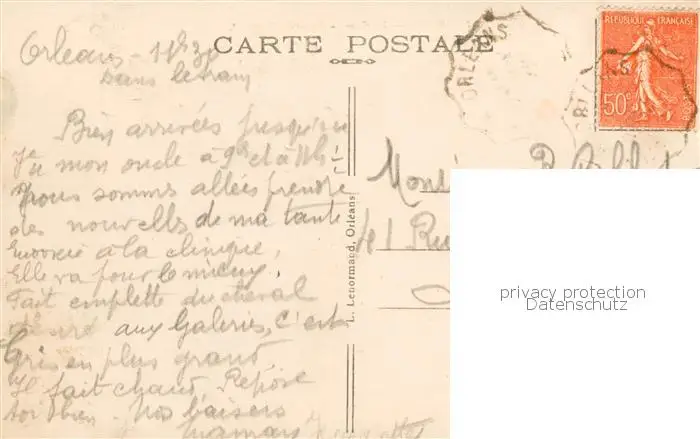 CARTE POSTALE
Orléans - 11h30
Dans le tram
Bien arrivées jusqu'ici
Vu mon oncle à 9h et à 11h
nous somms allées prendre
des nouvelles de ma tante
à la clinique,
Elle va pour le mieux.
Fait emplette du cheval
aux Galeries, c'est
Gris en plus grand
Il fait chaud, Repose
toi bien. Nos baisers
maman
L. Lenormand, Orléans
41 Ru
ORLEANS
ORLEANS
REPUBLIQUE FRANÇAISE
50c
privacy protection
Datenschutz